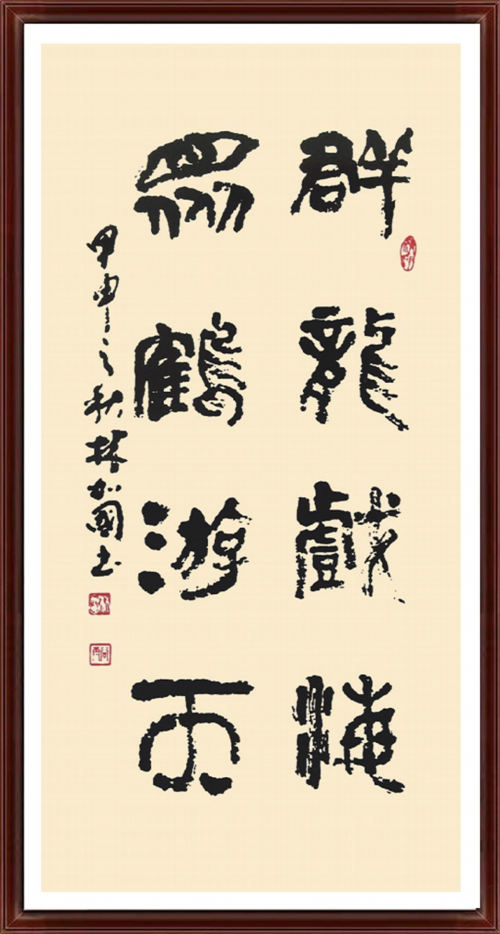 群龍戲海
眾鶴游天
甲申之秋林加國書